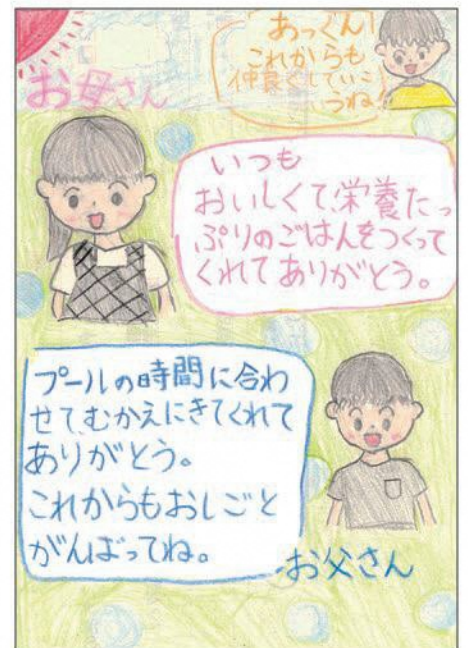 あっくん
これからも
仲良くしていこ
うね
お母さん
いつも
おいしくて、栄養たっ
ぷりのごはんをつくって
くれてありがとう。
プールの時間に合わ
せて、むかえにきてくれて
ありがとう。
これからもおしごと
がんばってね。
お父さん